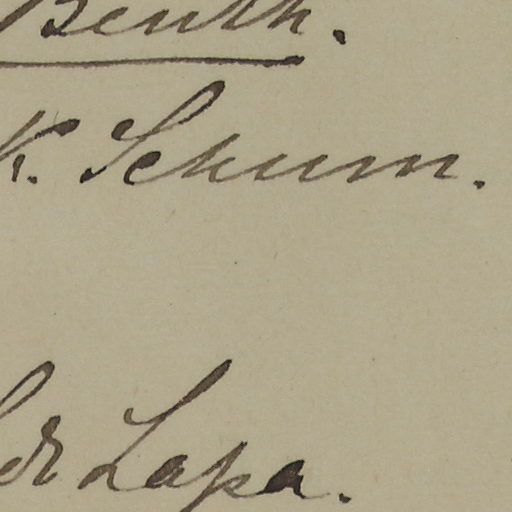 Benth.
K. Schum.
Lapa.